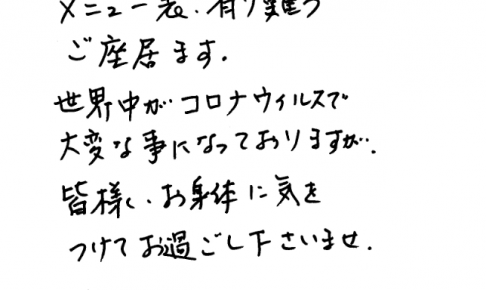 メニュー表、有り難う
ご座居ます.
世界中がコロナウィルスで
大変な事になっておりますが、
皆様、お身体に気を
つけてお過ごし下さいませ.